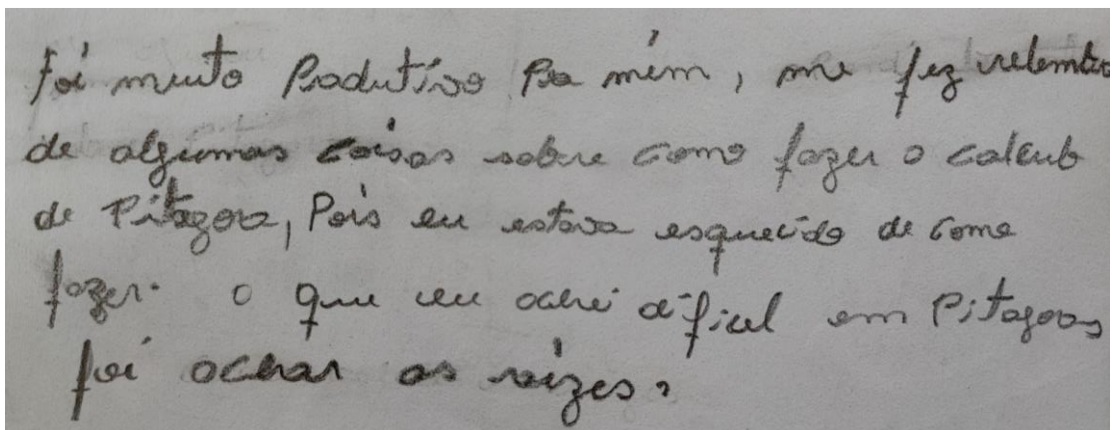 Foi muito Produtivo Pra mim, me fez relembrar
de algumas coisas sobre como fazer o calculo
de Pitagora, Pois eu estava esquecido de como
fazer. o que eu achei dificil em Pitagoras
foi achar as raizes.